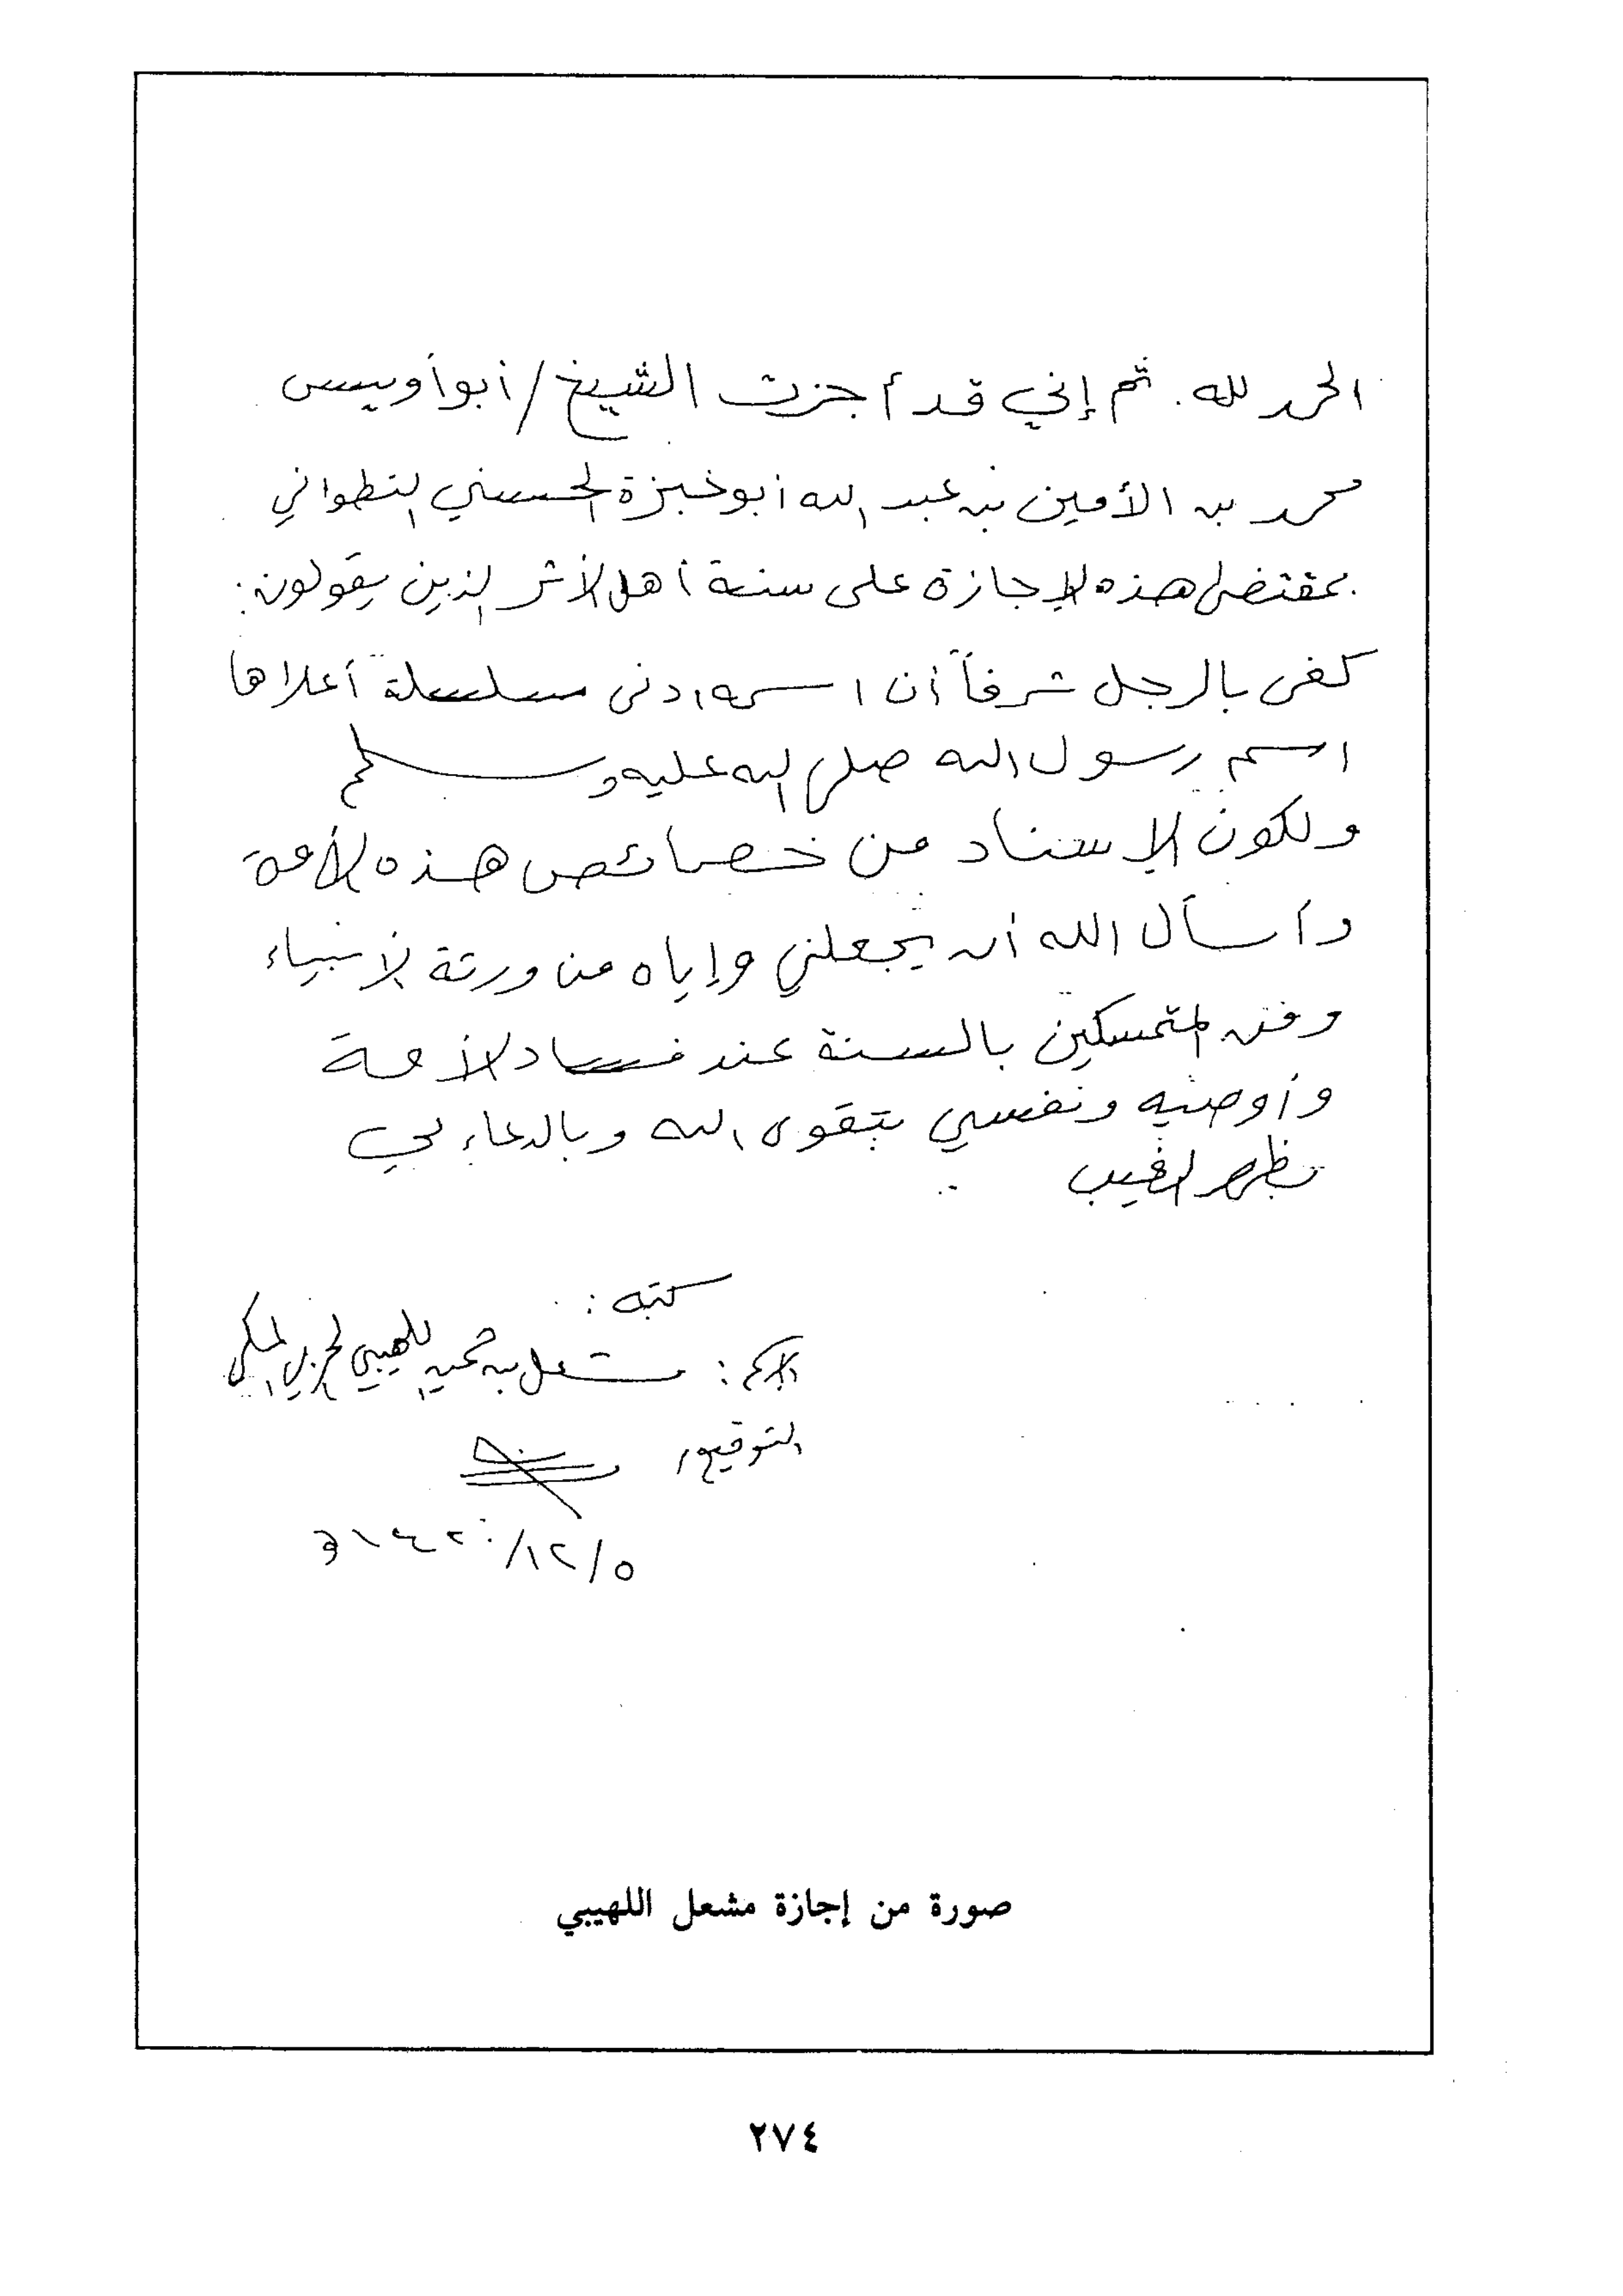 الحمد لله. ثم إني قد أجزت الشيخ/أبو أويس
محمد بن الأمين بن عبد الله أبو خبزة الحسني التطواني
بمقتضى هذه الإجازة على سنة أهل الأثر الذين يقولون:
كفى بالرجل شرفاً أن اسمه ادنى سلسلة أعلاها
اسم رسول الله صلى الله عليه وسلم
ولكون الإسناد من خصائص هذه الأمة
وأسأل الله أن يجعلني وإياه من ورثة الأنبياء
ومن المتمسكين بالسنة عند فساد الأمة
وأوصيه ونفسي بتقوى الله وبالدعاء لي
بظهر الغيب
كتبه:
الاسم: مشعل بن اللهيبي الحربي المكي
التوقيع/
٥/١٢/١٤٢٠هـ
صورة من إجازة مشعل اللهيبي
٢٧٤